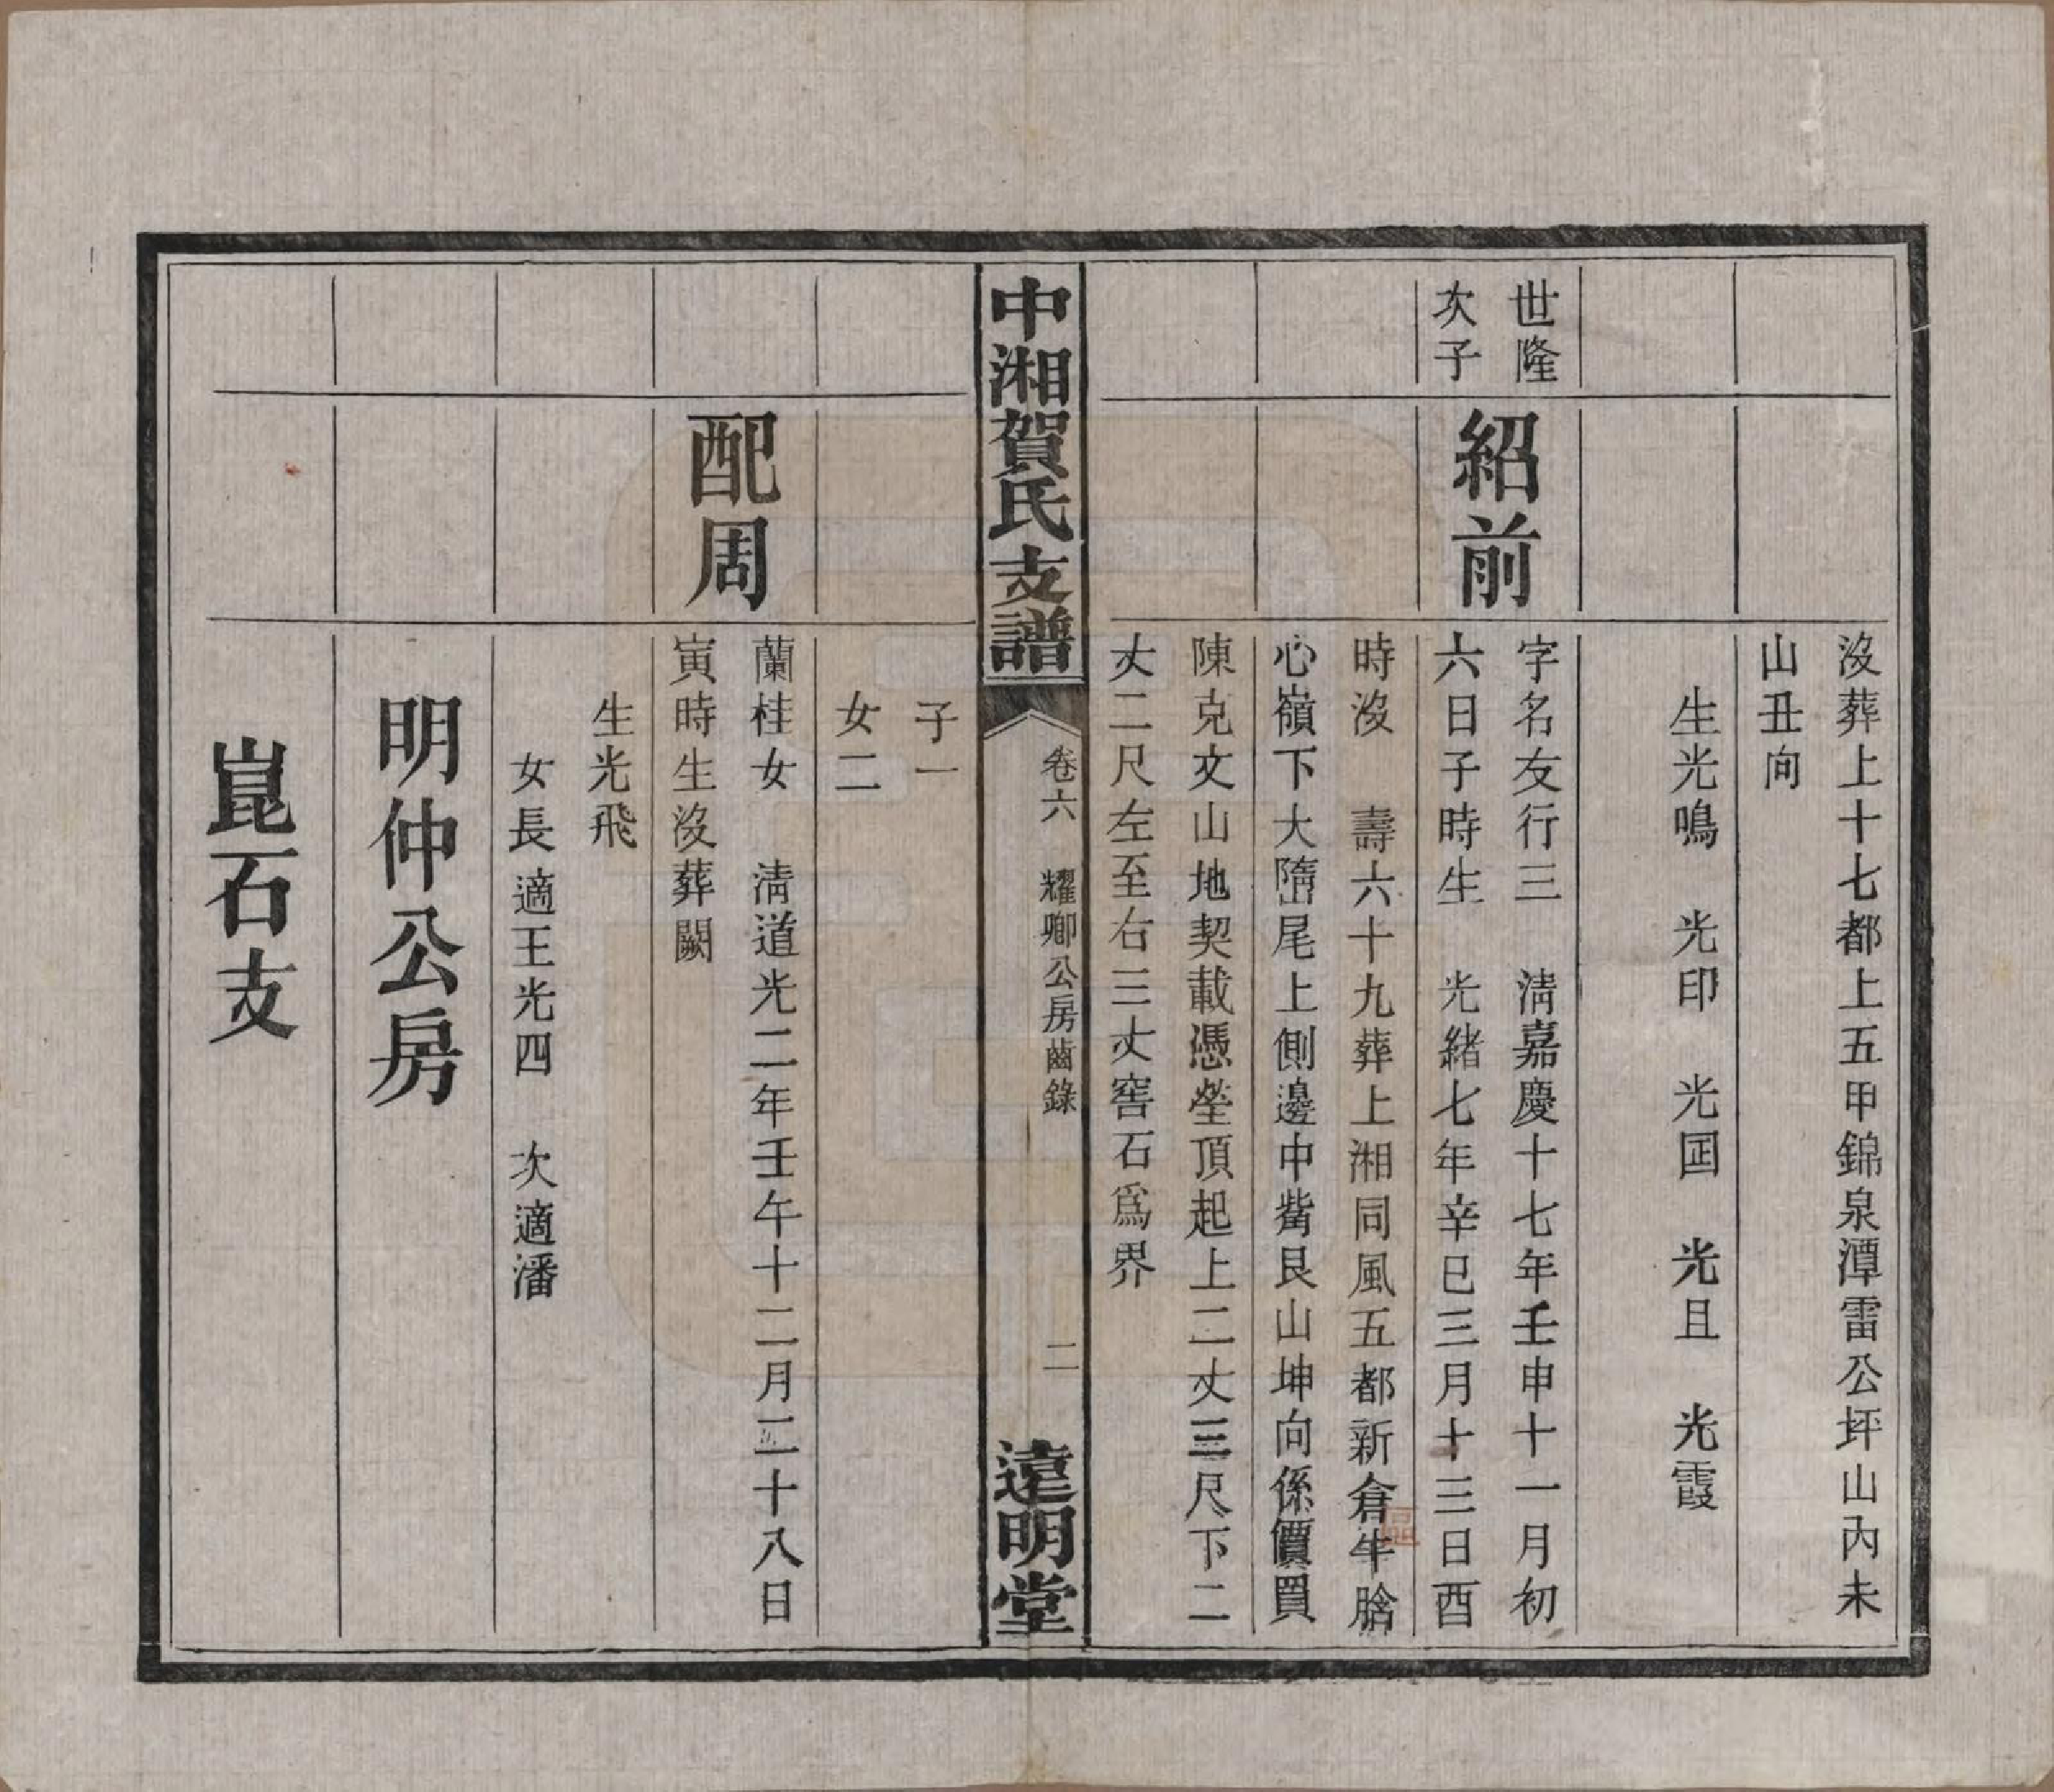 沒葬上十七都上五甲錦泉潭雷公坪山內未
山丑向
生光鳴　光印　光国　光且　光霞
世隆
次子
紹前
字名友行三　清嘉慶十七年壬申十一月初
六日子時生　光緒七年辛巳三月十三日酉
時沒　壽六十九葬上湘同風五都新倉牛
心嶺下大隋尾上側邊中觜艮山坤向係價買
陳克文山地契載憑塋頂起上二丈三尺下二
丈二尺左至右三丈窖石爲界
中湘賀氏支譜
卷六　耀卿公房齒錄
二
遠明堂
子一
女二
配周
蘭桂女　清道光二年壬午十二月二十八日
寅時生沒葬闕
生光飛
女長適王光四　次適潘
明仲公房
崑石支